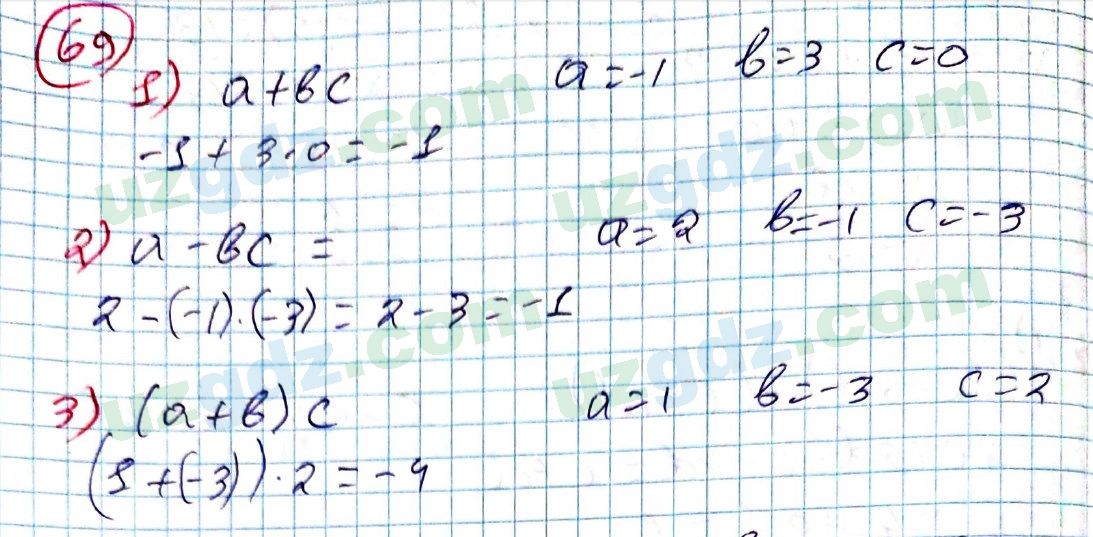 69
1) a+bc a=-1 b=3 c=0
-1+3·0=-1
2) a-bc= a=2 b=-1 c=-3
2-(-1)·(-3)=2-3=-1
3) (a+b)c a=1 b=-3 c=2
(1+(-3))·2=-4
uzgdz.com uzgdz.com
uzgdz.com uzgdz.com